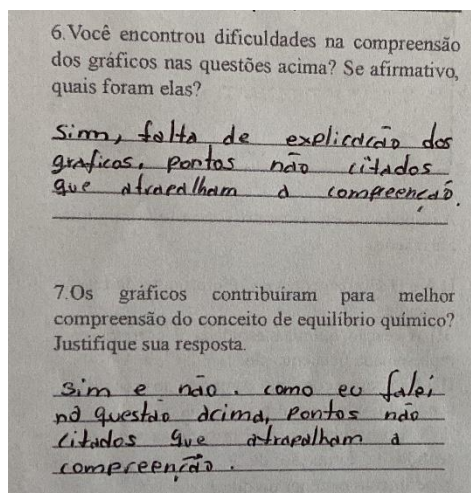 6.Você encontrou dificuldades na compreensão
dos gráficos nas questões acima? Se afirmativo,
quais foram elas?
Sim, falta de explicação dos
graficos, pontos não citados
que atrapalham a compreenção.
7.Os gráficos contribuíram para melhor
compreensão do conceito de equilíbrio químico?
Justifique sua resposta.
Sim e não. como eu falei
na questão acima, pontos não
citados que atrapalham a
compreenção.